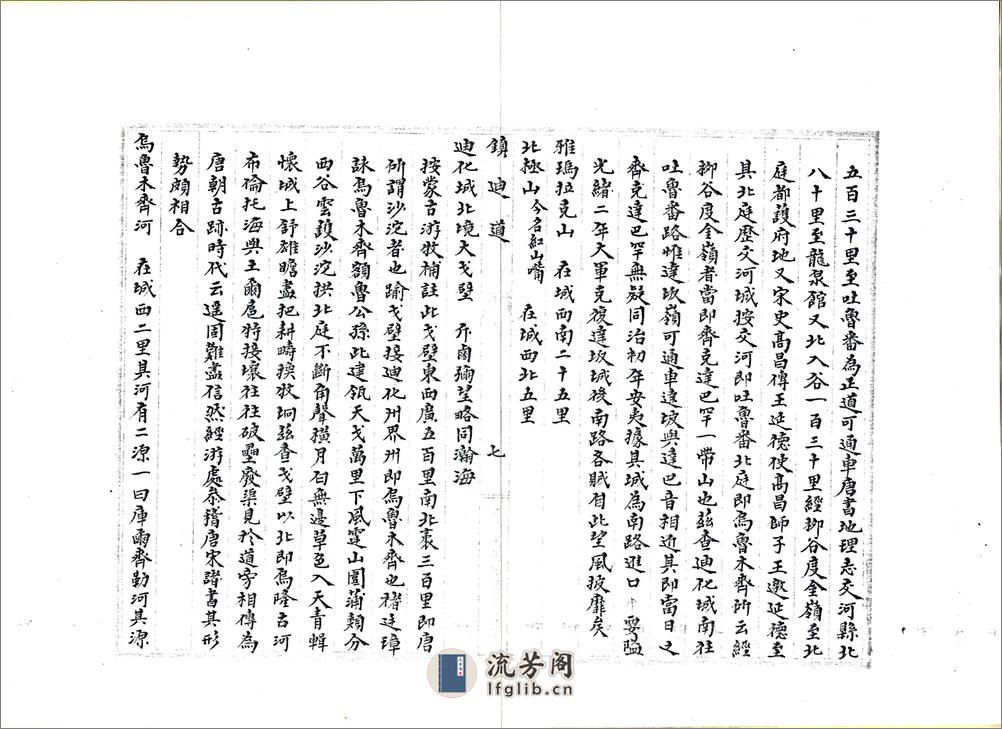 五百三十里至吐魯番為正道可通車唐書地理志交河縣北
八十里至龍泉館又北入谷一百三十里經柳谷度金嶺至北
庭都護府地又宋史高昌傳王延德使高昌師子王邀延德至
其北庭歷交河城按交河即吐魯番北庭即烏魯木齊所云經
柳谷度金嶺者當即齊克達巴罕一帶山也茲查迪化城南往
吐魯番路惟達坂嶺可通車達坂與達巴音相近其即當日之
齊克達巴罕無疑同治初年安夷據其城為南路進口要隘
光緒二年大軍克復達坂城後南路各賊自此望風披靡矣
雅瑪拉克山 在城西南二十五里
北極山今名紅山嘴 在城西北五里
鎮迪道 七
迪化城北境大戈壁 斥鹵彌望略同瀚海
按蒙古游牧補註此戈壁東西廣五百里南北袤三百里即唐
所謂沙沱者也踰戈壁接迪化州界州即烏魯木齊也褚廷璋
詠烏魯木齊額魯公孫此建瓴天戈萬里下風霆山圍蒲類分
西谷雲護沙沱拱北庭不斷角聲橫月白無邊草色入天青輯
懷城上舒雄瞻盡把耕疇換牧坰茲查戈壁以北即烏隆古河
布倫托海與土爾扈特接壤往往破壘廢渠見於道旁相傳為
唐朝古跡時代云遥固難盡信然經游處參稽唐宋諸書其形
勢頗相合
烏魯木齊河 在城西二里其河有二源一曰庫爾齊勒河其源
流芳阁
lfglib.cn